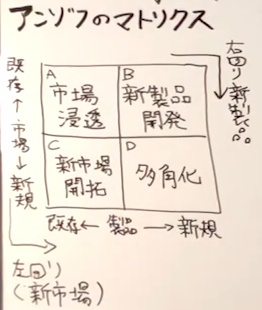 アンゾフのマトリクス
既存←市場→新規
A
市場
浸透
B
新製品
開発
C
新市場
開拓
D
多角化
既存← 製品 →新規
右回り新製品
左回り
(新市場)